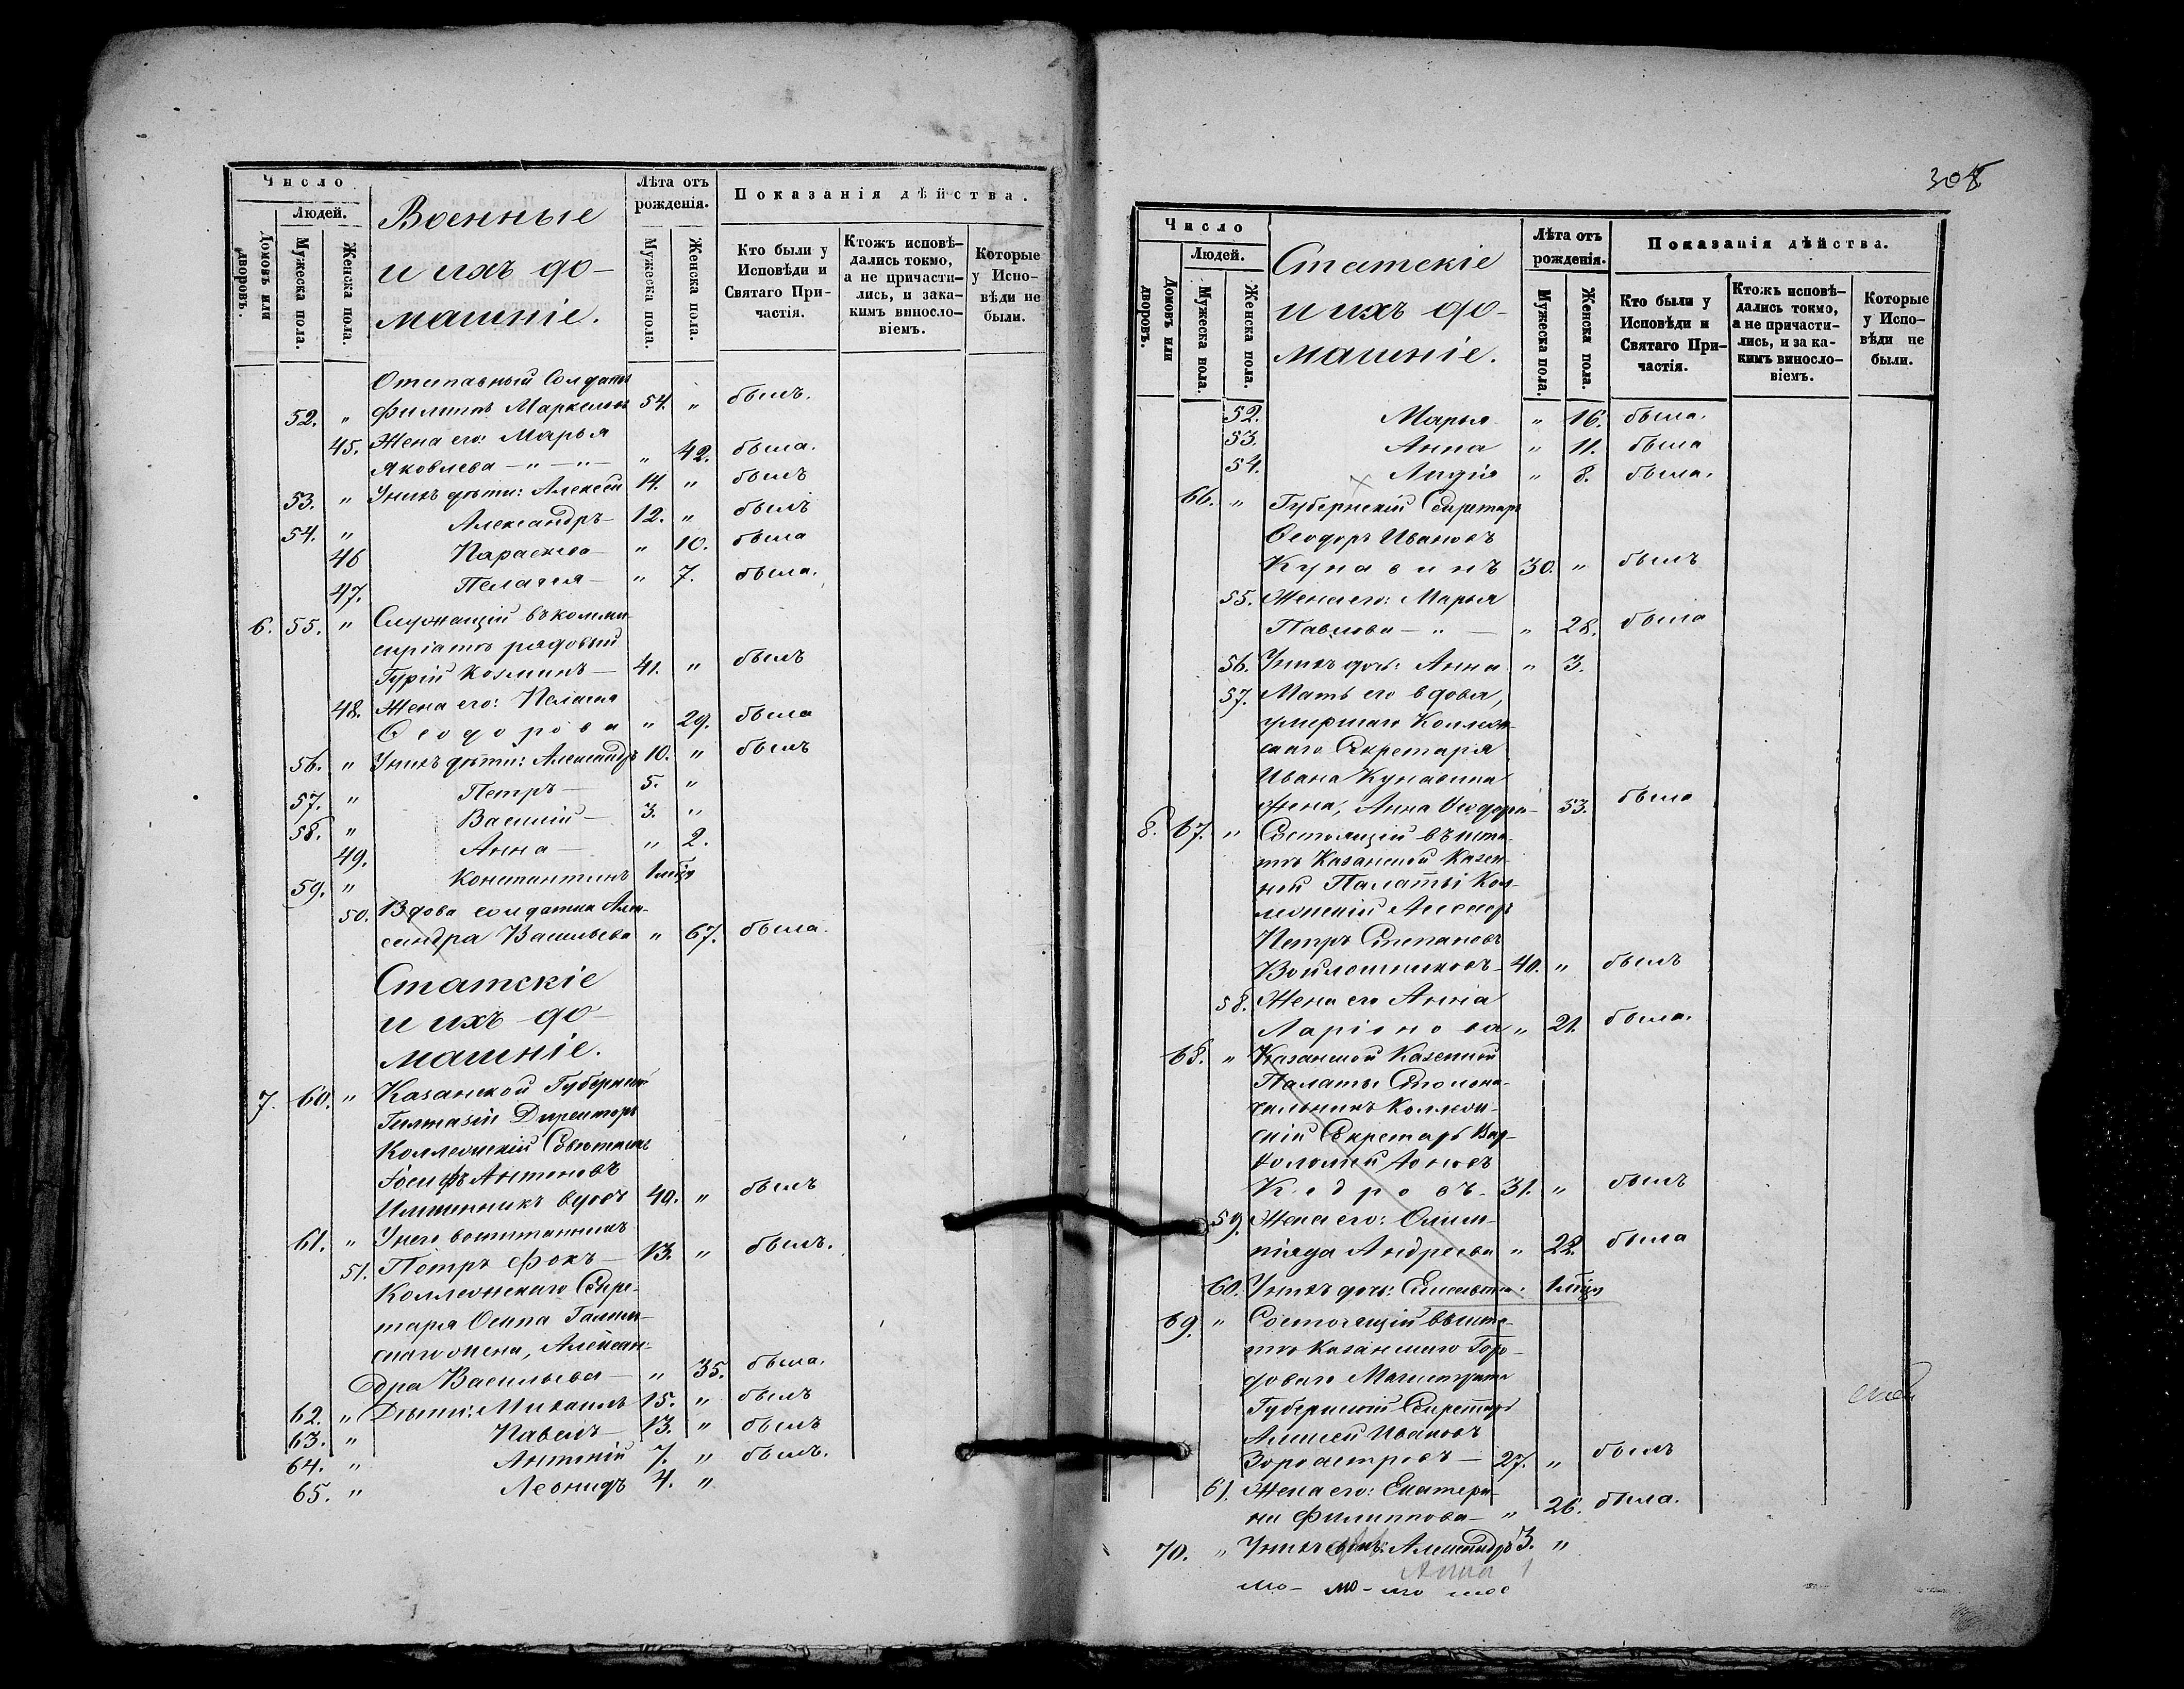 Число
Людей.
Домовъ или дворовъ.
Мужеска пола.
Женска пола.
Военные
и ихъ до-
машніе.
Лѣта отъ рожденія.
Мужеска пола.
Женска пола.
Показанія дѣйства.
Кто были у Исповѣди и Святаго При-частія.
Ктожъ исповѣ-дались токмо, а не причасти-лись, и зака-кимъ винносло-віемъ.
Которые у Испо-вѣди не были.
Отставный Солдатъ
52. " Филиппъ Маркеловъ 54. " былъ.
45. Жена его: Марья
Яковлева — " — " — " 42. была.
53. " У нихъ дѣти: Алексей 14. " былъ
54. " Александръ — 12. " былъ
46 Параскева — " 10. была
47. Пелагея — " 7. была.
6. 55. " Служащій въ комми-
саріатѣ рядовый
Гурій Козминъ — 41. " былъ
48. Жена его: Пелагея
Ѳеодорова " 29. была
56. " У нихъ дѣти: Александръ 10. " былъ
57. " Петръ — 5. "
58. " Василій — 3. "
49. Анна — " 2.
59. " Константинъ 1 мѣц
50. Вдова солдатка Алек-
сандра Васильева " 67. была.
Статскіе
и ихъ до-
машніе.
7. 60. " Казанской Губернской
Гимназіи Директоръ
Коллежскій Совѣтникъ
Іосифъ Антоновъ
вдовъ 49. " былъ
61. " У него воспитанникъ
Петръ Фокъ — 13. " былъ.
51. Коллежскаго Секре-
таря Осипа
жена, Алексан-
дра Васильева — " 35. была.
62. " Дѣти: Михаилъ 15. " былъ
63. " Павелъ — 13. " былъ
64. " Антоній 7. " былъ.
65. " Леонидъ 4. "
308
Число
Людей.
Домовъ или дворовъ.
Мужеска пола.
Женска пола.
Статскіе
и ихъ до-
машніе.
Лѣта отъ рожденія.
Мужеска пола.
Женска пола.
Показанія дѣйства.
Кто были у Исповѣди и Святаго При-частія.
Ктожъ исповѣ-дались токмо, а не причасти-лись, и за ка-кимъ винносло-віемъ.
Которые у Испо-вѣди не были.
52. Марья " 16. была.
53. Анна " 11. была
54. Лидія " 8. была.
66. " Губернскій Секретарь
Ѳеодоръ Ивановъ
Кунавинъ 30. " былъ
55. Жена его: Марья
Павлова — " — " 28. была
56. У нихъ дочь: Анна " 3.
57. Мать его вдова,
умершаго Коллеж-
скаго Секретаря
Ивана Кунавина
жена, Анна Ѳеодоро- 53. была
8. 67. " Состоящій въ шта-
тѣ Казанской Казен-
ной Палаты Кол-
лежскій Асессоръ
Петръ Степановъ
Войлошниковъ — 40. " былъ
58. Жена его Анна
Ларіонова " 21. была.
68. " Казанской Казенной
Палаты Столона-
чальникъ Коллеж-
скій Секретарь Вар-
ѳоломей
Кедровъ — 31. " былъ
59. Жена его: Олим-
піяда Андреева " 22. была
60. У нихъ дочь: 1 мѣц
69. " Состоящій въ шта-
тѣ Казанскаго Горо-
доваго Магистрата
Губернскій Секретарь
Алексей Ивановъ
Зороастровъ — 27. " былъ
61. Жена его: Екатери-
на Филиппова — " 26. была.
70. " У нихъ Александръ 3. "
Анна 1